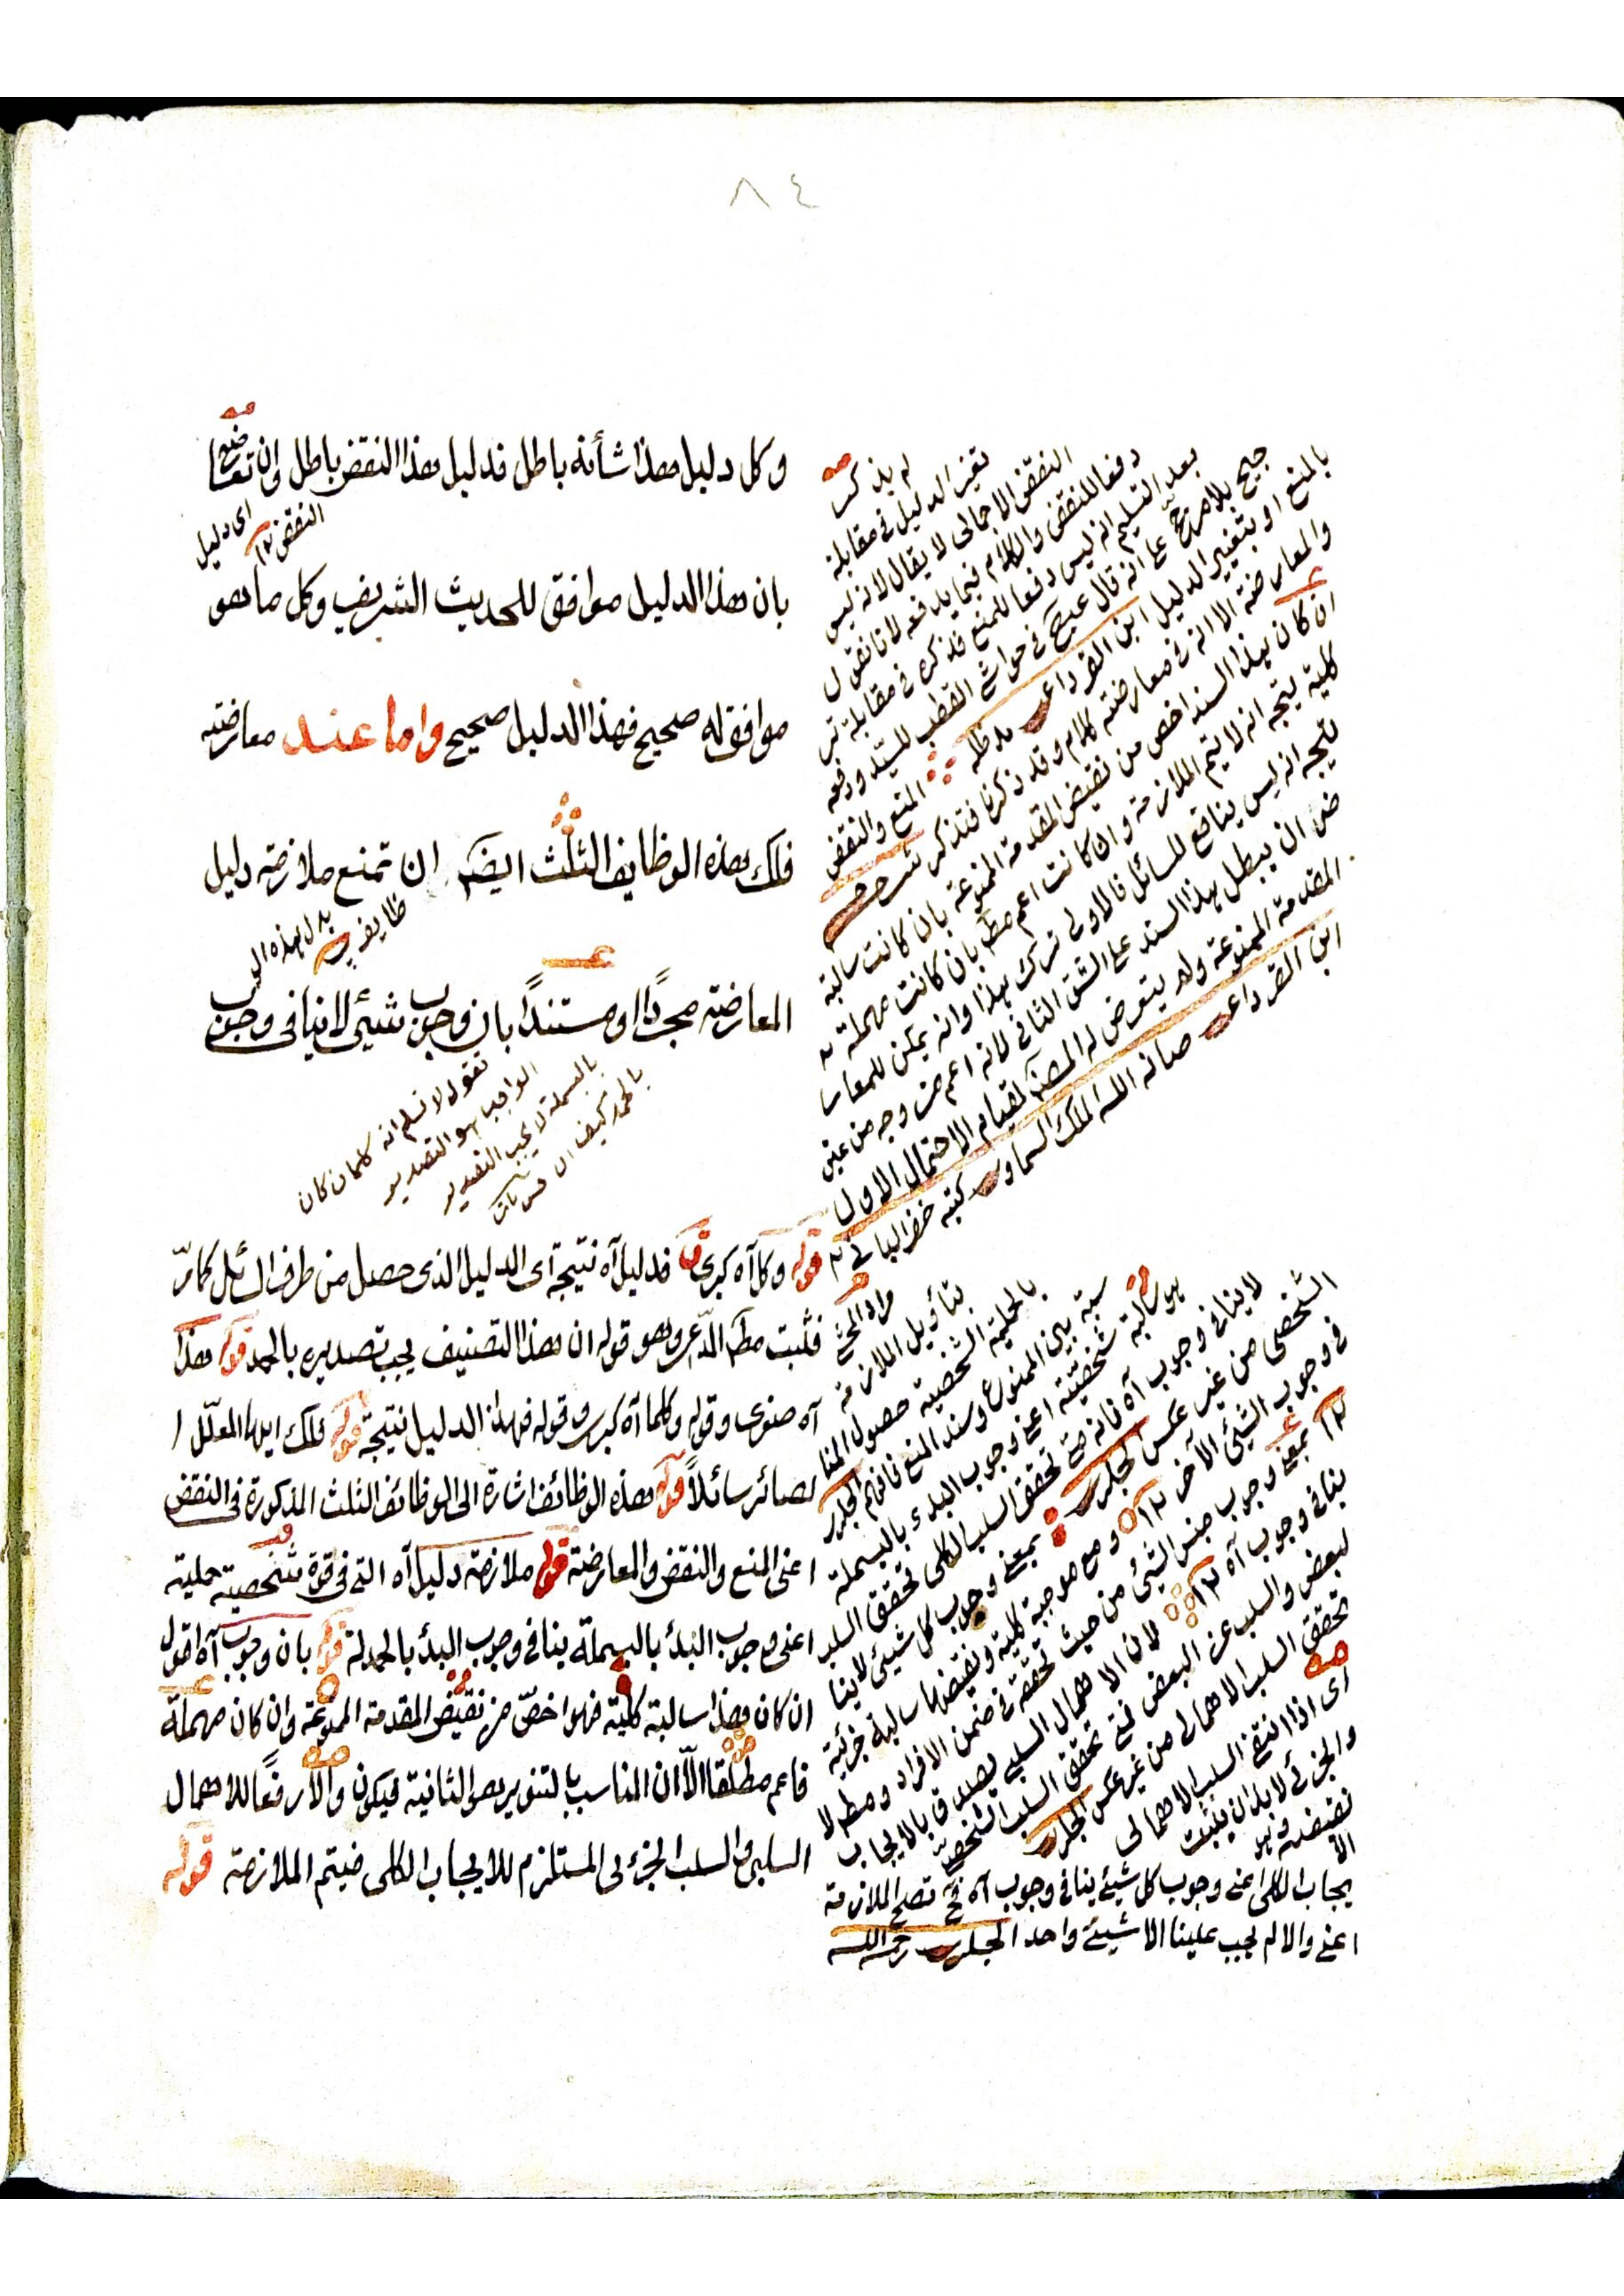 ٨٤
وكل دليل هذا شأنه باطل فدليل هذا النقض باطل وان تعارضها
اى دليل
النقض ١٢
بان هذا الدليل موافق للحديث الشريف وكل ما هو
موافق له صحيح فهذا الدليل صحيح واما عند معارضته
فلك هذه الوظايف الثلث ايضا ان تمنع ملازمة دليل
بدل هذه الو
ظايف
المعارضة مجردًا او مستندًا بان وجوب شيئ لا ينافى وجوب
نقول لا نسلم انه كلما كان
الواجب هو التصدير
بالبسملة لا يجب التصدير
بالحمد كيف
لم يذكر
تغيير الدليل فى مقابلة
النقض الاجمالى لا يقال لانه ليس
دفعا للنقض والكلام فيما يدفعه لانا نقول
بعد التسليم انه ليس دفعا للمنع فذكره فى مقابلة تر
جيح بلا مرجح على انه قال عبح فى حواشى القطب للسيد ودفعه
بالمنع او بتغيير الدليل ابن القرداغى مد ظله
المنع والنقض
والمعارضة الا ان فى معارضته كلام وقد ذكرنا فتذكر
ان كان هذا السند اخص من نقيض المقدمة الممنوعة بان كانت سالبة
كلية يتجه انه لا يتم الملازمة وان كانت اعم مط بان كانت مهملة
يتجه انه ليس ينافع للسائل فالاولى ترك هذا وانه يمكن للمعار
ض ان يبطل هذا السند على الشق الثانى لانه اعم من وجه من عين
المقدمة الممنوعة ولم يتعرض له المصنف لقيام الاحتمال الاول
ابن القرداغى صانه الله الملك السماوى كتبه خضر البالى
قوله وكل آه كبرى فدليل آه نتيجة اى الدليل الذى حصل من طرف السائل كما مرّ
فثبت مط المدّعى وهو قوله ان هذا التصنيف يجب تصديره بالحمد قوله هذا
آه صغرى وقوله وكلما آه كبرى وقوله فهذا الدليل نتيجة قوله فلك ايها المعلّل ا
لصائر سائلاً قوله هذه الوظائف اشارة الى الوظائف الثلث المذكورة فى النقض
اعنى المنع والنقض والمعارضة قوله ملازمة دليل آه التى فى قوة شخصية حملية
اعنى وجوب البدأ بالبسملة ينافى وجوب البدأ بالحمدلة قوله بان وجوب آه اقول
ان كان هذا سالبة كلية فهو اخصّ من نقيض المقدمة الممنوعة وان كان مهملة
فاعم مطلقا الاّ ان المناسب بالتنوير هو الثانية فيكون والاّ رفعًا للاهمال
السلبى والسلب الجزئى المستلزم للايجاب الكلى فيتم الملازمة قوله
مراد المحشى
بتأويل الملازمة
بالحملية الشخصية حصول المنا
سبة بين الممنوع وسند المنع فافهم الجلى
هو سالبة شخصية اعنى وجوب البدء بالبسملة
لا ينافى وجوب آه فانه متى تحقق السلب الكلى تحقق السلب
الشخصى من غير عكس الجلى بمعنى وجوب كل شيئ لا ينا
فى وجوب الشيئ الآخر ١٢ ومع موجبة كلية ونقيضها سالبة جزئية
١٢ بمعنى وجوب جنس الشيئ من حيث تحققه فى ضمن الافراد ومط لا
ينافى وجوب آه ١٢ لان الاهمال السلبى يصدق بالايجاب
لبعض والسلب عن البعض فمتى تحقق السلب الشخصى
تحقق السلب الاهمالى من غير عكس الجلى
اى اذا انتفى السلب الاهمالى
والجزئى لابد ان يثبت
نقيضه وهو
الا
يجاب الكلى اعنى وجوب كل شيئ ينافى وجوب آه فح تصح الملازمة
اعنى والا لم يجب علينا الا شيئ واحد الجلى رحمه الله